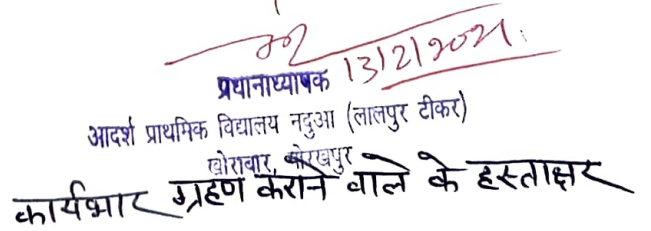 13/2/2021
प्रधानाध्यापक
आदर्श प्राथमिक विद्यालय नदुआ (लालपुर टीकर)
खोराबार, गोरखपुर
कार्यभार ग्रहण कराने वाले के हस्ताक्षर